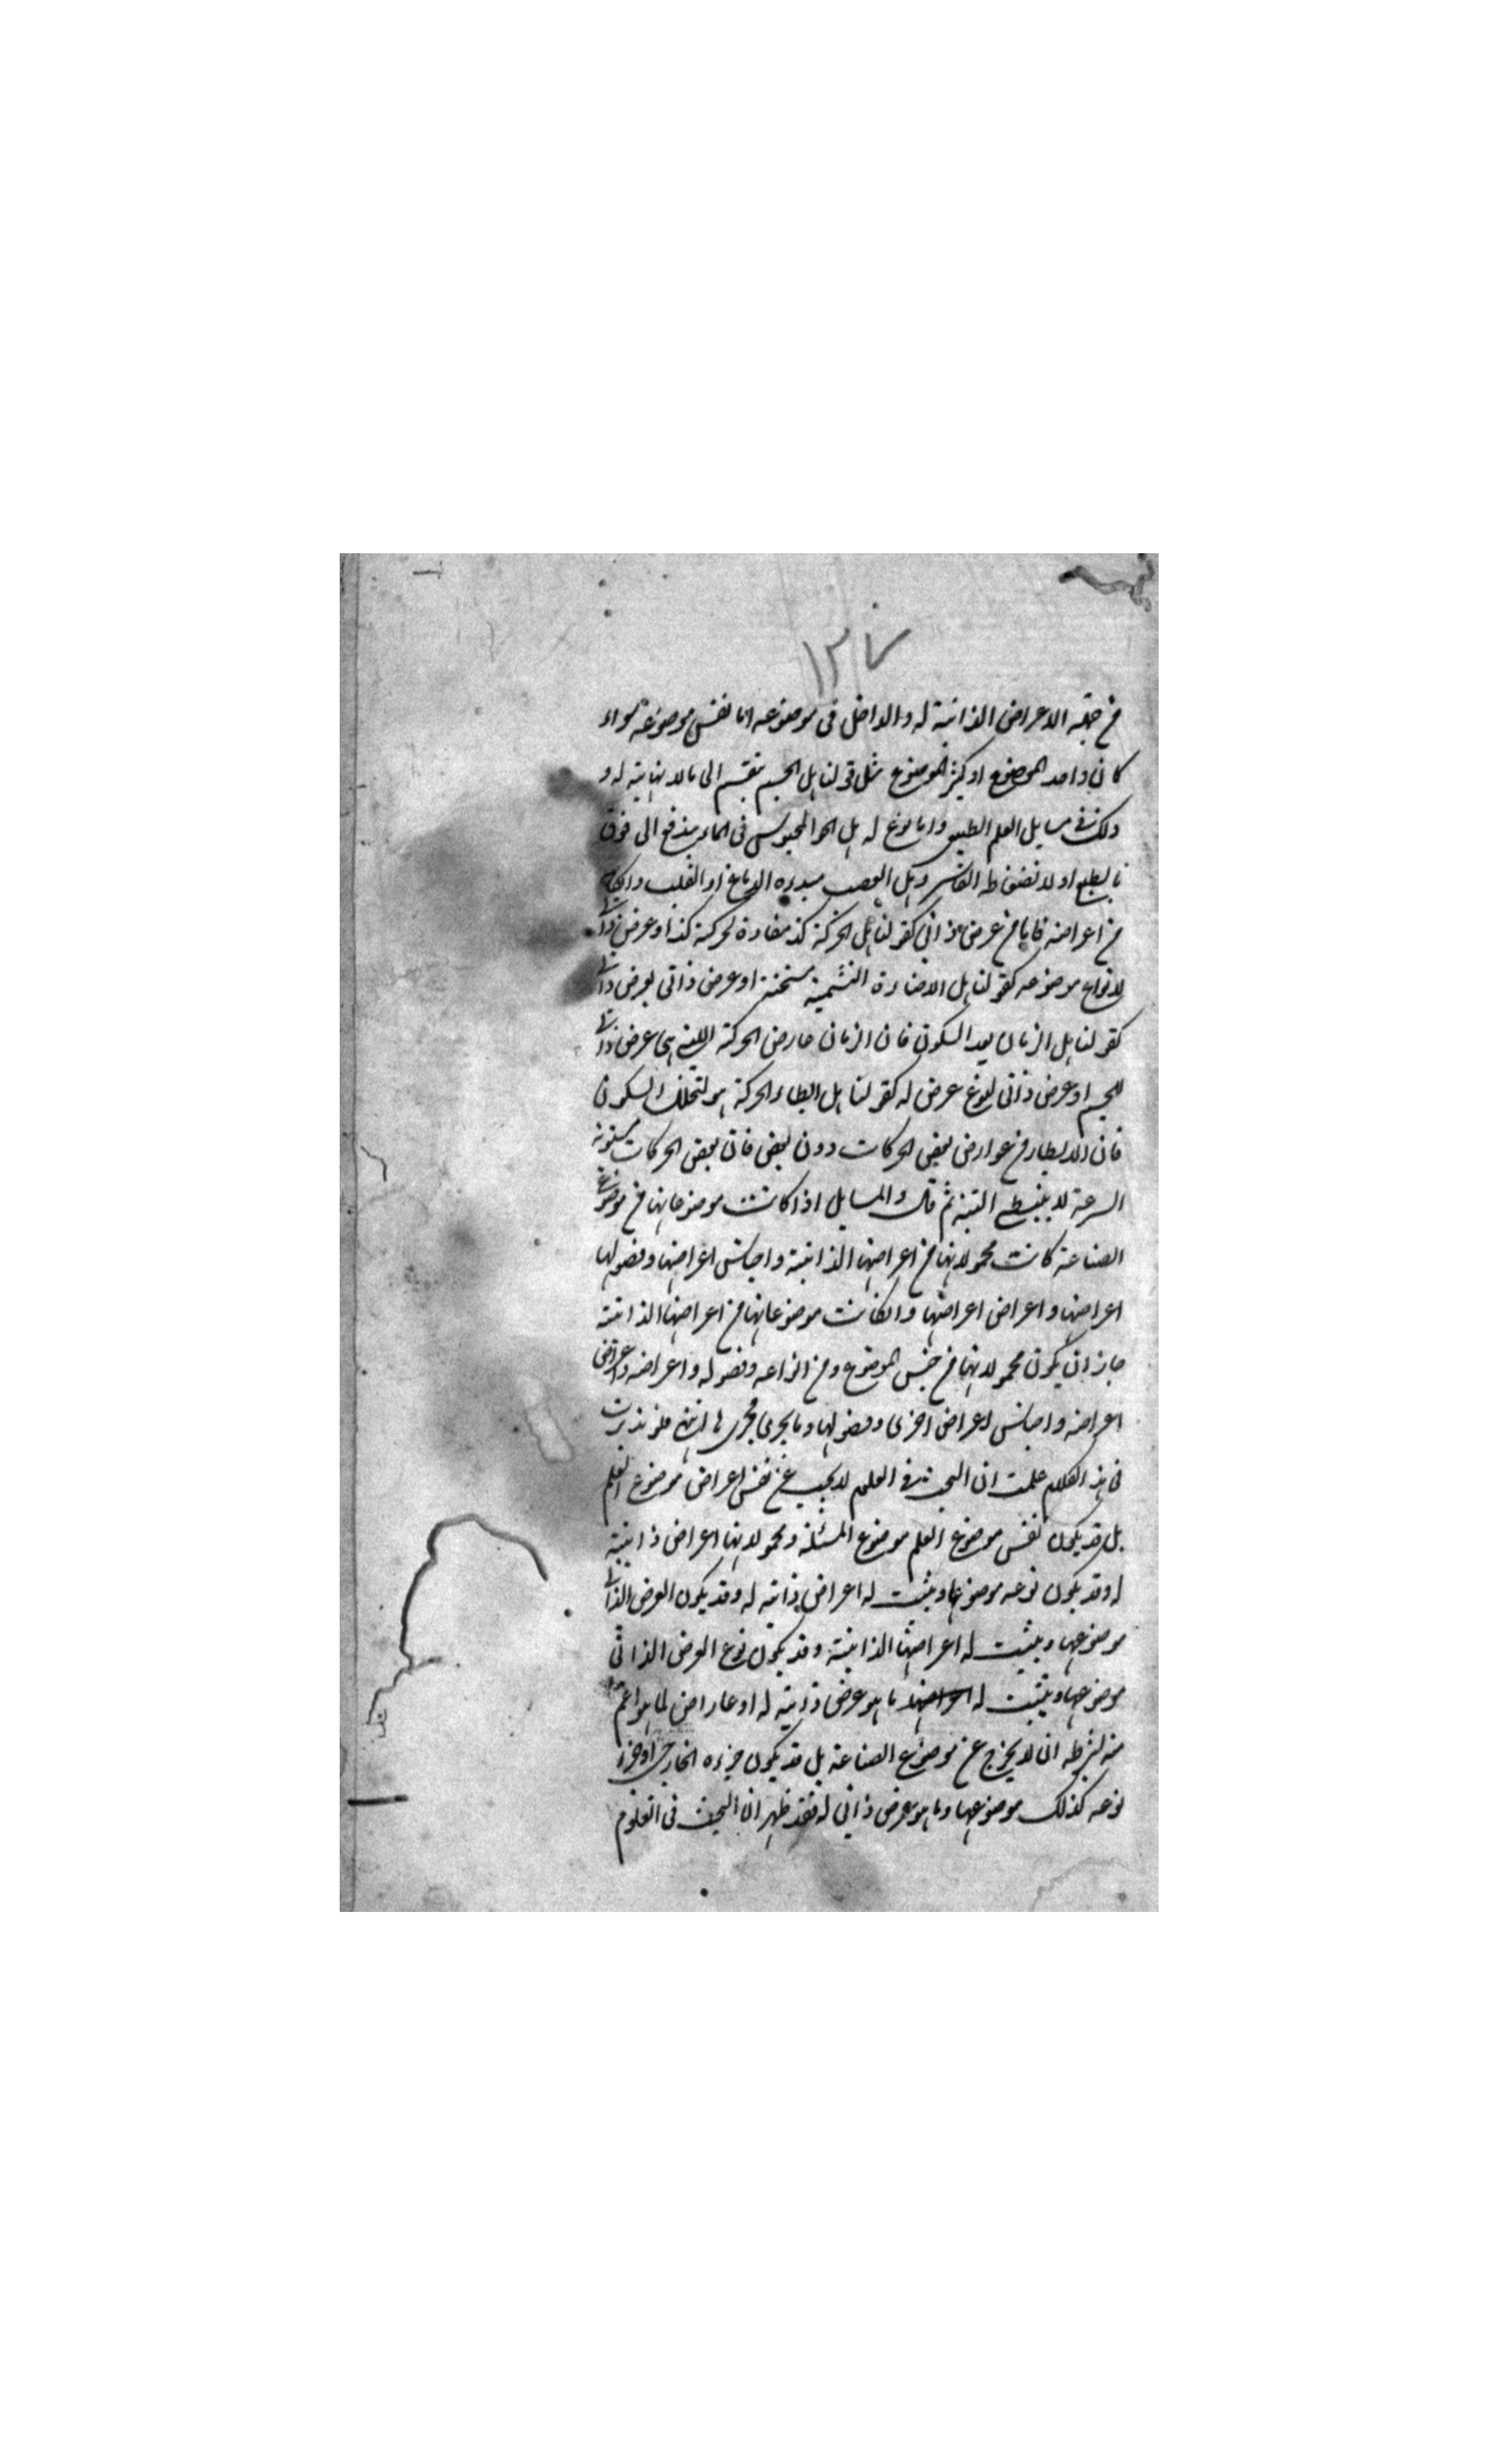 ١٣٧
من جهة الاعراض الذاتية له والداخل فى موضوعه اما نفس موضوعه سواء
كان واحد الموضوع او كثير الموضوع مثل قولنا هل الجسم ينقسم الى مالا نهاية له و
ذلك فى مسايل العلم الطبيعى واما نوع له هل الهواء المحبوس فى الماء يندفع الى فوق
بالطبع او لانضغاط القاسر وهل العصب مبدءه الدماغ او القلب
من اعراضه فاما من عرض ذاتى كقولنا هل الحركة كذا مضادة لحركة كذا او عرض ذاتى
لانواع موضوعه كقولنا هل الاضاءة الشمسية مسخنة او عرض ذاتى لعرض ذاتى
كقولنا هل الزمان بعد السكون فان الزمان عارض الحركة التى هى عرض ذاتى
للجسم او عرض ذاتى لنوع عرض له كقولنا هل ابطاء الحركة هو لتخلل السكون
فان الابطاء من عوارض بعض الحركات دون بعض فان بعض الحركات مستوية
السرعة لا يبطئ البتة ثم قال والمسايل اذا كانت موضوعاتها من موضوع
الصناعة كانت محمولاتها من اعراضها الذاتية واجناس اعراضها وفصولها
اعراضها واعراض اعراضها وان كانت موضوعاتها من اعراضها الذاتية
جاز ان يكون محمولاتها من جنس الموضوع ومن انواعه وفصوله واعراضه واعراض
اعراضه واجناس اعراض اخرى وفصولها وما يجرى مجرى ها انتهى فلو تدبرت
فى هذا الكلام علمت ان البحث فى العلم لا يجب عن نفس اعراض موضوع العلم
بل قد يكون نفس موضوع العلم موضوع المسئلة ومحمولاتها اعراض ذاتية
له وقد يكون نوعه موضوعها ويثبت له اعراض ذاتية له وقد يكون العرض الذاتى
موضوعها ويثبت له اعراضها الذاتية وقد يكون نوع العرض الذاتى
موضوعها ويثبت له ما هو عرض ذاتية له او عارض لما هو اعم
منه بشرط ان لا يخرج عن موضوع الصناعة بل قد يكون جزءه الخارجى او جزء
نوعه كذلك موضوعها وما هو عرض ذاتى له فقد ظهر ان البحث فى العلوم